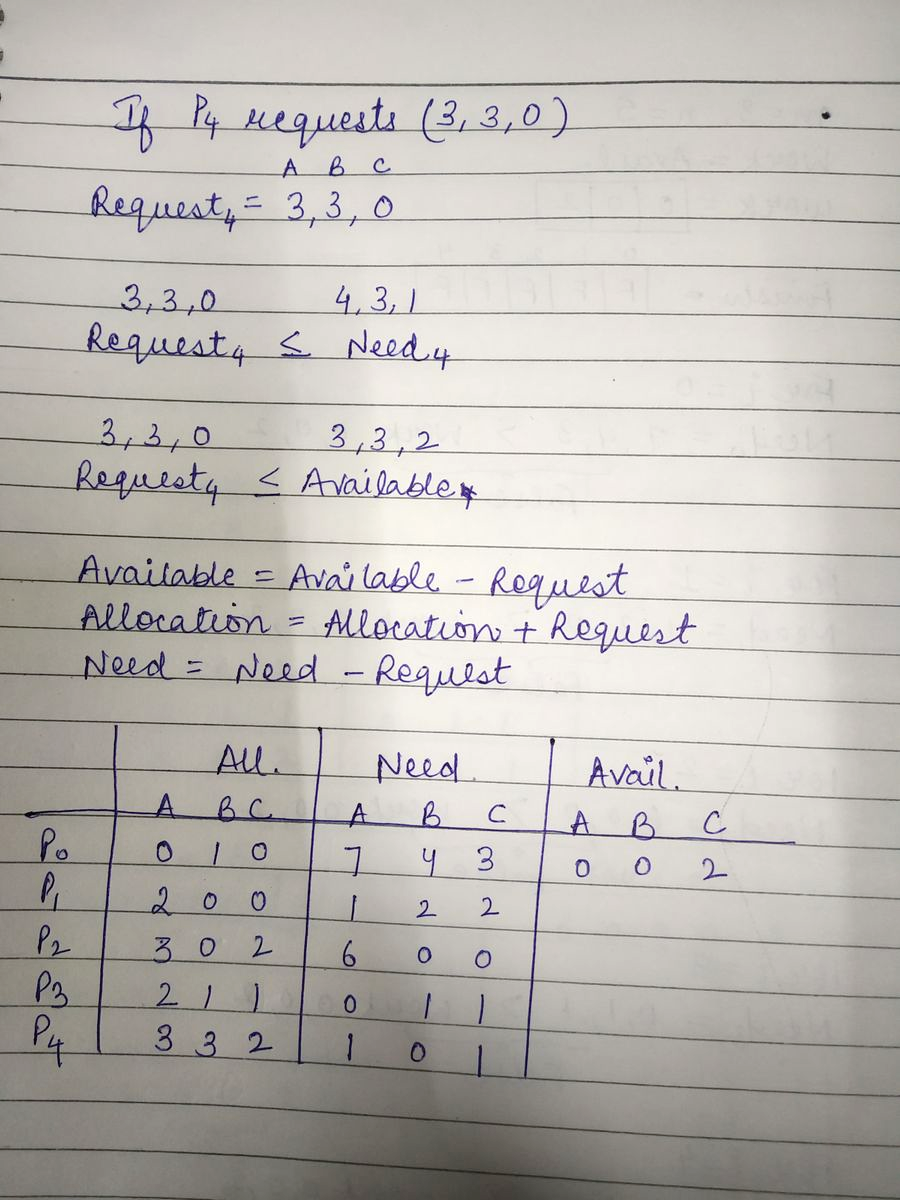 If P4 requests (3,3,0)
A B C
Request4 = 3, 3, 0
3,3,0 4,3,1
Request4 ≤ Need4
3,3,0 3,3,2
Request4 ≤ Available
Available = Available - Request
Allocation = Allocation + Request
Need = Need - Request
All. Need. Avail.
A B C A B C A B C
P0 0 1 0 7 4 3 0 0 2
P1 2 0 0 1 2 2
P2 3 0 2 6 0 0
P3 2 1 1 0 1 1
P4 3 3 2 1 0 1